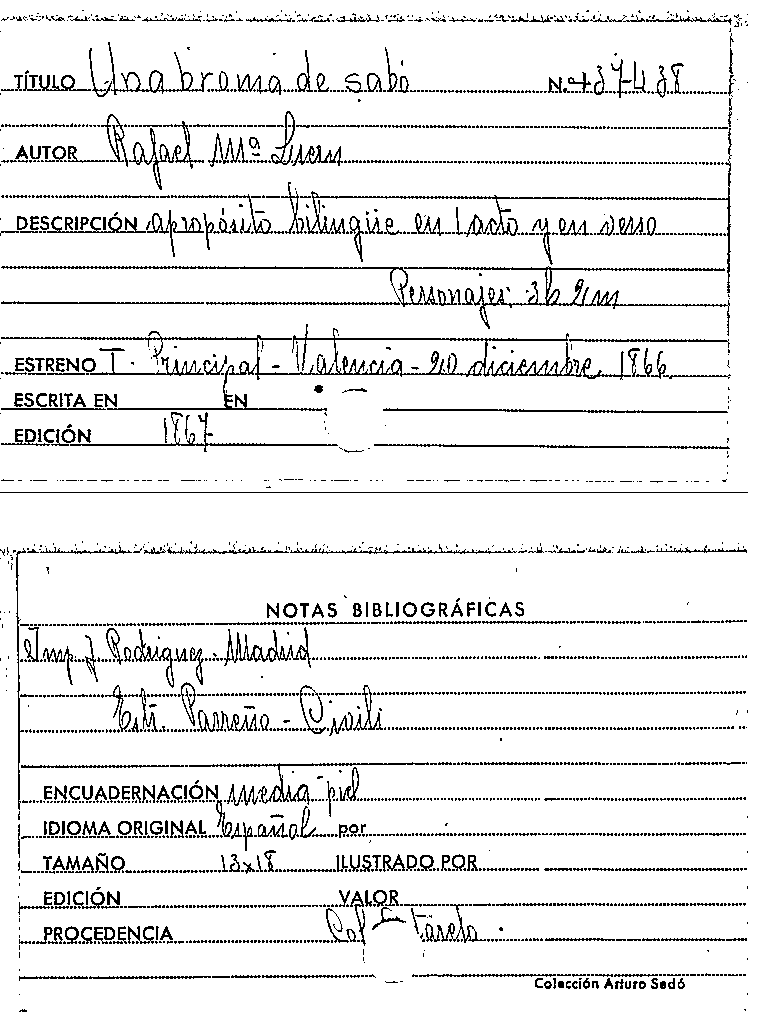 TÍTULO Una broma de sabó N. 437438
AUTOR Rafael Mª Liern
DESCRIPCIÓN apropósito bilingüe en 1 acto y en verso
Personajes: 3h 2m
ESTRENO T. Principal - Valencia - 20 diciembre 1866
ESCRITA EN EN
EDICIÓN 1867
NOTAS BIBLIOGRÁFICAS
Imp J Rodriguez - Madrid
Estr. Parreño - Civili
ENCUADERNACIÓN media piel
IDIOMA ORIGINAL Español por
TAMAÑO 13x18 ILUSTRADO POR
EDICIÓN VALOR
PROCEDENCIA Col
Colección Arturo Sedó